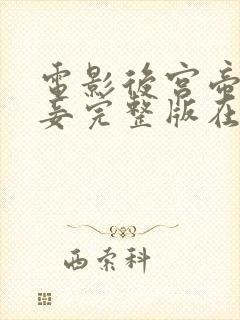 電影後宮帝
妾完整版在
西索科